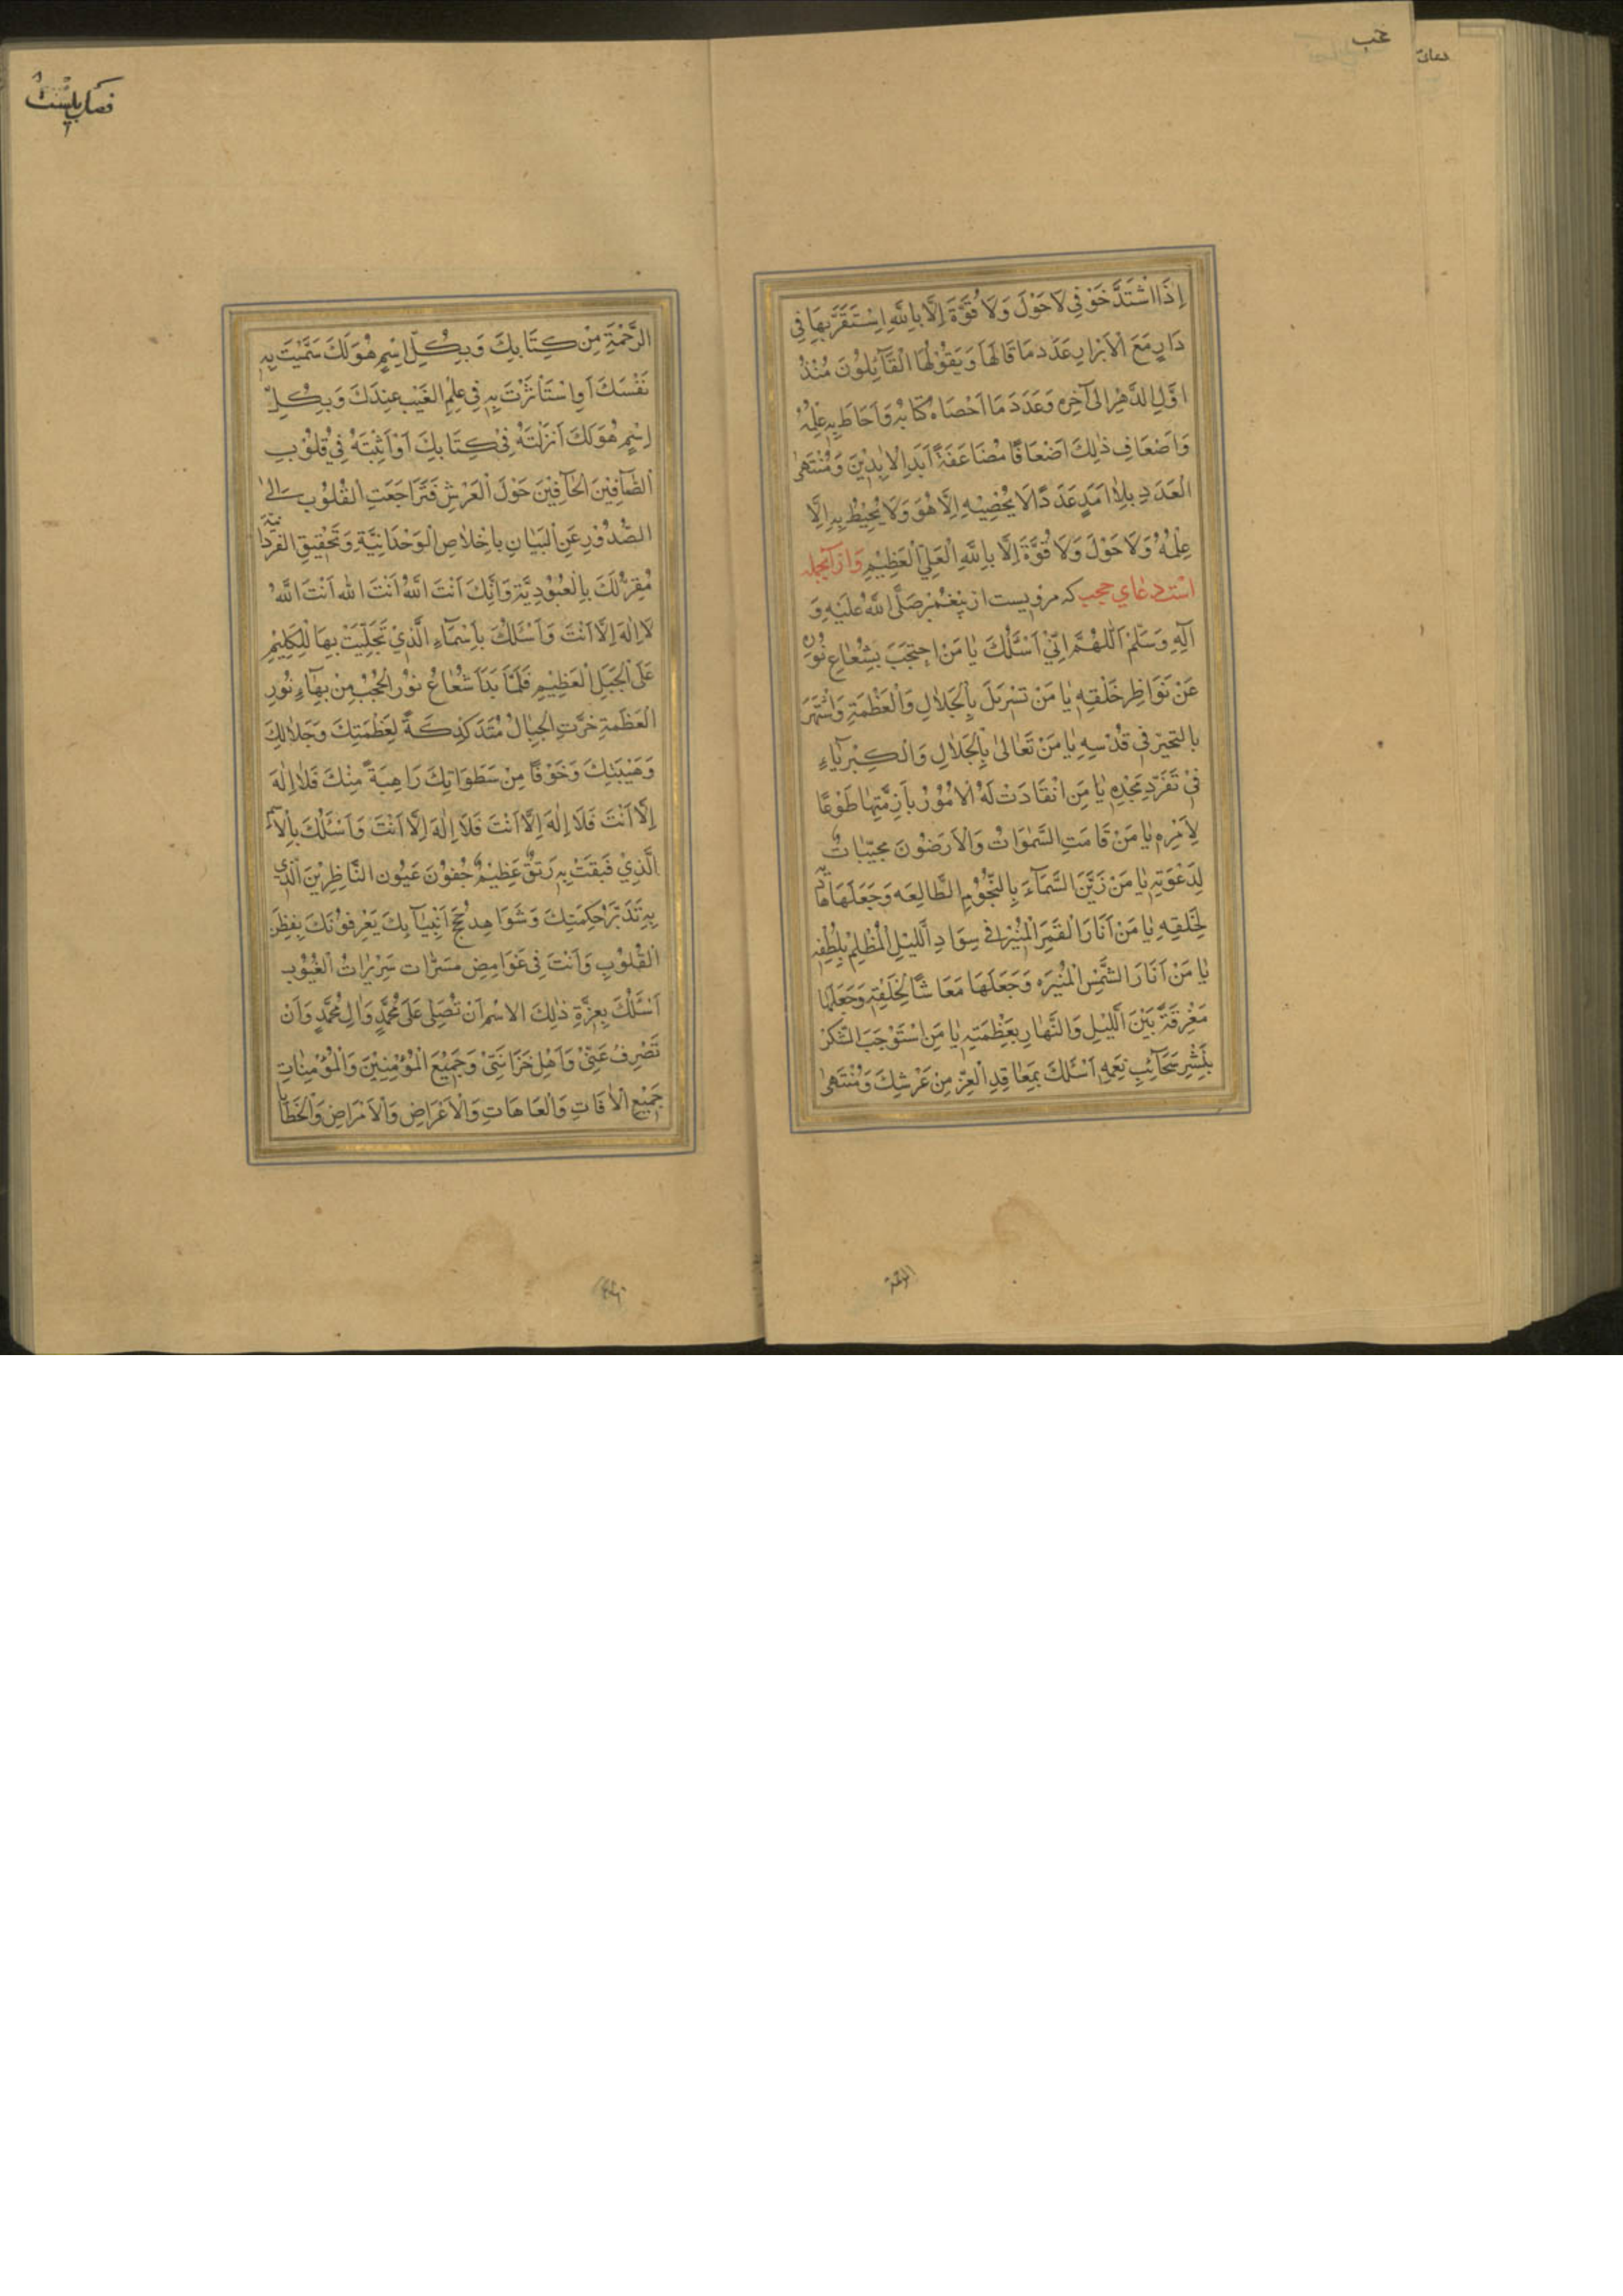 حجب
دعای
إِذَا اشْتَدَّ خَوْفِي لَا حَوْلَ وَلَا قُوَّةَ إِلَّا بِاللّٰهِ اِسْتَقَرَّ بِهَا فِي
دَارٍ مَعَ الْاَبْرَارِ عَدَدَ مَا قَالَهَا وَيَقُوْلُهَا الْقَآئِلُوْنَ مُنْذُ
اَوَّلِ الدَّهْرِ اِلٰى آخِرِهِ وَعَدَدَ مَا اَحْصَاهُ كِتَابُهُ وَاَحَاطَ بِهِ عِلْمُهُ
وَاَضْعَافِ ذٰلِكَ اَضْعَافًا مُضَاعَفَةً اَبَدَ الْاٰبِدِيْنَ وَمُنْتَهَى
الْعَدَدِ بِلَا اَمَدٍ عَدَدًا لَا يُحْصِيْهِ اِلَّا هُوَ وَلَا يُحِيْطُ بِهِ اِلَّا
عِلْمُهُ وَلَا حَوْلَ وَلَا قُوَّةَ اِلَّا بِاللّٰهِ الْعَلِيِّ الْعَظِيْمِ وَازآنجمله
است دعاي حجب كه مرويست از پيغمبر صَلَّى اللّٰهُ عَلَيْهِ وَ
اٰلِهِ وَسَلَّمَ اَللّٰهُمَّ اِنِّيْ اَسْئَلُكَ يَا مَنِ احْتَجَبَ بِشُعَاعِ نُوْرِهِ
عَنْ نَوَاظِرِ خَلْقِهِ يَا مَنْ تَسَرْبَلَ بِالْجَلَالِ وَالْعَظَمَةِ وَاشْتَهَرَ
بِالتَّجَبُّرِ فِي قُدْسِهِ يَا مَنْ تَعَالٰى بِالْجَلَالِ وَالْكِبْرِيَآءِ
فِيْ تَفَرُّدِ مَجْدِهِ يَا مَنِ انْقَادَتْ لَهُ الْاُمُوْرُ بِاَزِمَّتِهَا طَوْعًا
لِاَمْرِهِ يَا مَنْ قَامَتِ السَّمٰوَاتُ وَالْاَرَضُوْنَ مُجِيْبَاتٌ
لِدَعْوَتِهِ يَا مَنْ زَيَّنَ السَّمَآءَ بِالنُّجُوْمِ الطَّالِعَه وَجَعَلَهَا هَادِيَةً
لِخَلْقِهِ يَا مَنْ اَنَارَ الْقَمَرَ الْمُنِيْرَ فِي سَوَادِ اللَّيْلِ الْمُظْلِمِ بِلُطْفِهِ
يَا مَنْ اَنَارَ الشَّمْسَ الْمُنِيْرَه وَجَعَلَهَا مَعَاشًا لِخَلْقِهِ وَجَعَلَهَا
مُفَرِّقَةً بَيْنَ اللَّيْلِ وَالنَّهَارِ بِعَظَمَتِهِ يَا مَنِ اسْتَوْجَبَ الشُّكْرَ
بِنَشْرِ سَحَآئِبِ نِعَمِهِ اَسْئَلُكَ بِمَعَاقِدِ الْعِزِّ مِنْ عَرْشِكَ وَمُنْتَهَى
فصل بيست
الرَّحْمَةِ مِنْ كِتَابِكَ وَبِكُلِّ اِسْمٍ هُوَ لَكَ سَمَّيْتَ بِهِ
نَفْسَكَ اَوِ اسْتَأْثَرْتَ بِهِ فِي عِلْمِ الْغَيْبِ عِنْدَكَ وَبِكُلِّ
اِسْمٍ هُوَ لَكَ اَنْزَلْتَهُ فِيْ كِتَابِكَ اَوْ اَثْبَتَّهُ فِيْ قُلُوْبِ
الصَّآفِّيْنَ الْحَآفِّيْنَ حَوْلَ الْعَرْشِ فَتَرَاجَعَتِ الْقُلُوْبُ اِلٰى
الصُّدُوْرِ عَنِ الْبَيَانِ بِاِخْلَاصِ الْوَحْدَانِيَّةِ وَتَحْقِيْقِ الْفَرْدَانِيَّةِ
مُقِرَّةً لَكَ بِالْعُبُوْدِيَّةِ وَاَنَّكَ اَنْتَ اللّٰهُ اَنْتَ اللّٰه اَنْتَ اللّٰهُ
لَا اِلٰهَ اِلَّا اَنْتَ وَاَسْئَلُكَ بِاَسْمَآءِ الَّذِيْ تَجَلَّيْتَ بِهَا لِلْكَلِيْمِ
عَلَى الْجَبَلِ الْعَظِيْمِ فَلَمَّا بَدَا شُعَاعُ نُوْرِ الْحُجُبِ مِنْ بَهَآءِ نُوْرِ
الْعَظَمَةِ خَرَّتِ الْجِبَالُ مُتَدَكْدِكَةً لِعَظَمَتِكَ وَجَلَالِكَ
وَهَيْبَتِكَ وَخَوْفًا مِنْ سَطَوَاتِكَ رَاهِبَةً مِنْكَ فَلَا اِلٰهَ
اِلَّا اَنْتَ فَلَا اِلٰهَ اِلَّا اَنْتَ فَلَا اِلٰهَ اِلَّا اَنْتَ وَاَسْئَلُكَ بِالْاِسْمِ
الَّذِيْ فَتَقْتَ بِهِ رَتْقَ عَظِيْمِ جُفُوْنِ عُيُوْنِ النَّاظِرِيْنَ الَّذِي
بِهِ تَدَبَّرَ حِكْمَتِكَ وَشَوَاهِدُ حُجَجِ اَنْبِيَآئِكَ يَعْرِفُوْنَكَ بِفِطَنِ
الْقُلُوْبِ وَاَنْتَ فِي غَوَامِضِ مُسَرَّاتِ سَرِيْرَاتِ الْغُيُوْبِ
اَسْئَلُكَ بِعِزَّةِ ذٰلِكَ الْاِسْمِ اَنْ تُصَلِّيَ عَلٰى مُحَمَّدٍ وَاٰلِ مُحَمَّدٍ وَاَنْ
تَصْرِفَ عَنِّيْ وَاَهْلِ حُزَانَتِيْ وَجَمِيْعِ الْمُؤْمِنِيْنَ وَالْمُؤْمِنَاتِ
جَمِيْعَ الْاٰفَاتِ وَالْعَاهَاتِ وَالْاَعْرَاضِ وَالْاَمْرَاضِ وَالْخَطَايَا